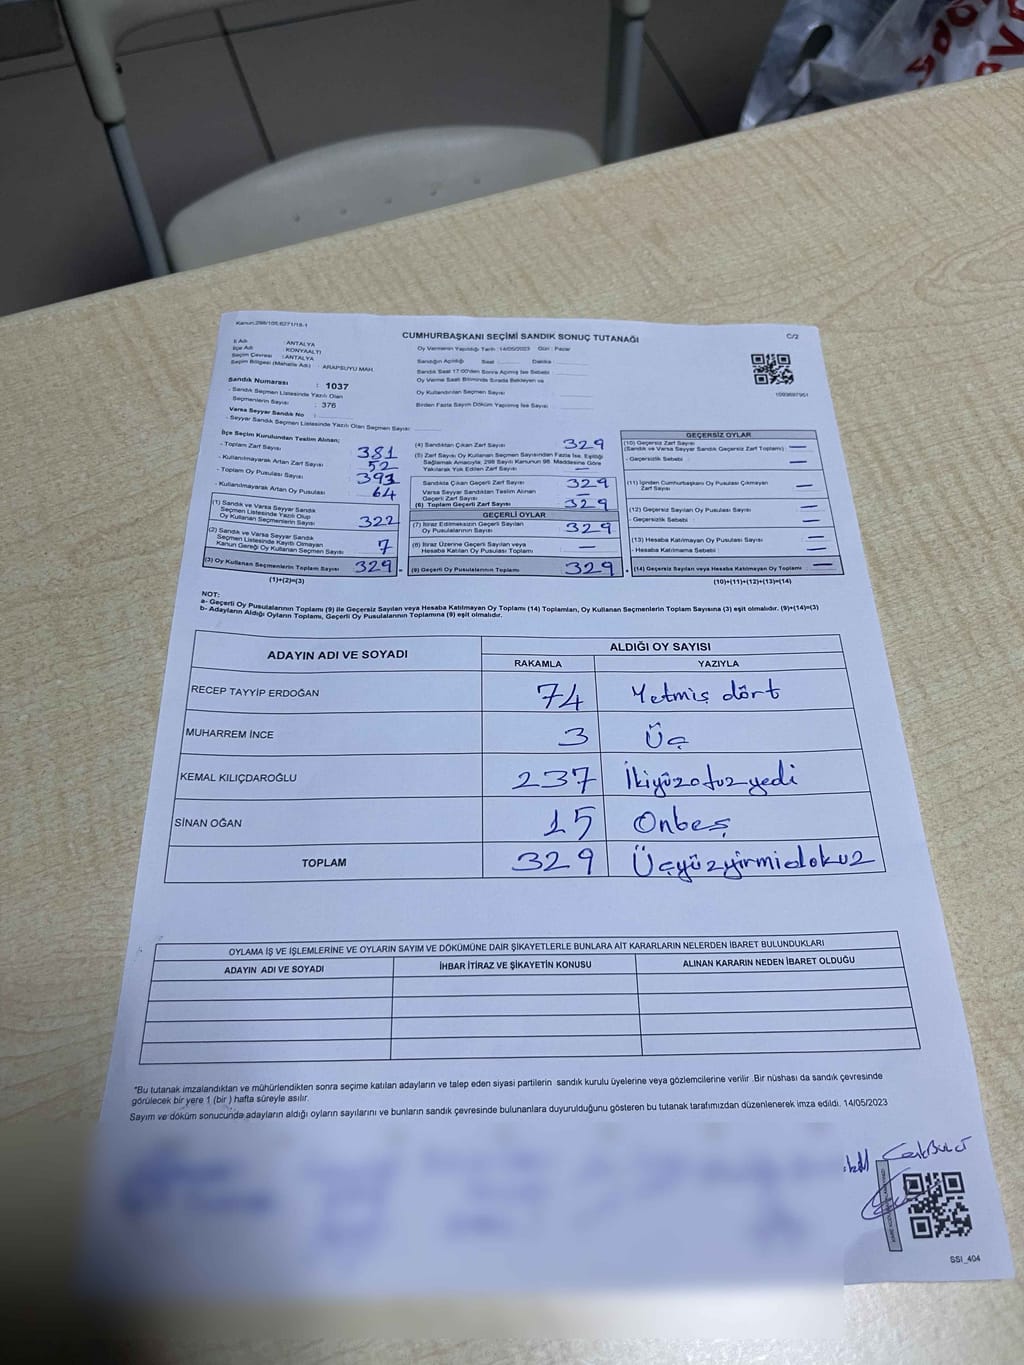 Kanun:298/105,6271/18-1
CUMHURBAŞKANI SEÇİMİ SANDIK SONUÇ TUTANAĞI
C/2
İl Adı : ANTALYA
İlçe Adı : KONYAALTI
Seçim Çevresi : ANTALYA
Seçim Bölgesi (Mahalle Adı) : ARAPSUYU MAH.
Sandık Numarası : 1037
- Sandık Seçmen Listesinde Yazılı Olan
Seçmenlerin Sayısı : 376
Varsa Seyyar Sandık No :
- Seyyar Sandık Seçmen Listesinde Yazılı Olan Seçmen Sayısı
Oy Vermenin Yapıldığı Tarih : 14/05/2023 Gün : Pazar
Sandığın Açıldığı Saat Dakika
Sandık Saat 17:00'den Sonra Açılmış İse Sebebi
Oy Verme Saati Bitiminde Sırada Bekleyen ve
Oy Kullandırılan Seçmen Sayısı
Birden Fazla Sayım Döküm Yapılmış İse Sayısı
1093697951
İlçe Seçim Kurulundan Teslim Alınan;
- Toplam Zarf Sayısı 381
- Kullanılmayarak Artan Zarf Sayısı 52
- Toplam Oy Pusulası Sayısı 393
- Kullanılmayarak Artan Oy Pusulası 64
(1) Sandık ve Varsa Seyyar Sandık
Seçmen Listesinde Yazılı Olup
Oy Kullanan Seçmenlerin Sayısı 322
(2) Sandık ve Varsa Seyyar Sandık
Seçmen Listesinde Kayıtlı Olmayan
Kanun Gereği Oy Kullanan Seçmen Sayısı 7
(3) Oy Kullanan Seçmenlerin Toplam Sayısı 329
(1)+(2)=(3)
(4) Sandıktan Çıkan Zarf Sayısı 329
(5) Zarf Sayısı Oy Kullanan Seçmen Sayısından Fazla İse, Eşitliği
Sağlamak Amacıyla, 298 Sayılı Kanunun 98. Maddesine Göre
Yakılarak Yok Edilen Zarf Sayısı —
Sandıkta Çıkan Geçerli Zarf Sayısı 329
Varsa Seyyar Sandıktan Teslim Alınan
Geçerli Zarf Sayısı —
(6) Toplam Geçerli Zarf Sayısı 329
GEÇERLİ OYLAR
(7) İtiraz Edilmeksizin Geçerli Sayılan
Oy Pusulalarının Sayısı 329
(8) İtiraz Üzerine Geçerli Sayılan veya
Hesaba Katılan Oy Pusulası Toplamı —
(9) Geçerli Oy Pusulalarının Toplamı 329
GEÇERSİZ OYLAR
(10) Geçersiz Zarf Sayısı
(Sandık ve Varsa Seyyar Sandık Geçersiz Zarf Toplamı) —
- Geçersizlik Sebebi : —
(11) İçinden Cumhurbaşkanı Oy Pusulası Çıkmayan
Zarf Sayısı —
(12) Geçersiz Sayılan Oy Pusulası Sayısı —
- Geçersizlik Sebebi : —
(13) Hesaba Katılmayan Oy Pusulası Sayısı —
- Hesaba Katılmama Sebebi : —
(14) Geçersiz Sayılan veya Hesaba Katılmayan Oy Toplamı —
(10)+(11)+(12)+(13)=(14)
NOT:
a- Geçerli Oy Pusulalarının Toplamı (9) ile Geçersiz Sayılan veya Hesaba Katılmayan Oy Toplamı (14) Toplamları, Oy Kullanan Seçmenlerin Toplam Sayısına (3) eşit olmalıdır. (9)+(14)=(3)
b- Adayların Aldığı Oyların Toplamı, Geçerli Oy Pusulalarının Toplamına (9) eşit olmalıdır.
ADAYIN ADI VE SOYADI ALDIĞI OY SAYISI
RAKAMLA YAZIYLA
RECEP TAYYİP ERDOĞAN 74 Yetmiş dört
MUHARREM İNCE 3 Üç
KEMAL KILIÇDAROĞLU 237 İkiyüzotuzyedi
SİNAN OĞAN 15 Onbeş
TOPLAM 329 Üçyüzyirmidokuz
OYLAMA İŞ VE İŞLEMLERİNE VE OYLARIN SAYIM VE DÖKÜMÜNE DAİR ŞİKAYETLERLE BUNLARA AİT KARARLARIN NELERDEN İBARET BULUNDUKLARI
ADAYIN ADI VE SOYADI İHBAR İTİRAZ VE ŞİKAYETİN KONUSU ALINAN KARARIN NEDEN İBARET OLDUĞU
*Bu tutanak imzalandıktan ve mühürlendikten sonra seçime katılan adayların ve talep eden siyasi partilerin sandık kurulu üyelerine veya gözlemcilerine verilir .Bir nüshası da sandık çevresinde
görülecek bir yere 1 (bir ) hafta süreyle asılır.
Sayım ve döküm sonucunda adayların aldığı oyların sayılarını ve bunların sandık çevresinde bulunanlara duyurulduğunu gösteren bu tutanak tarafımızdan düzenlenerek imza edildi. 14/05/2023
SSI_404